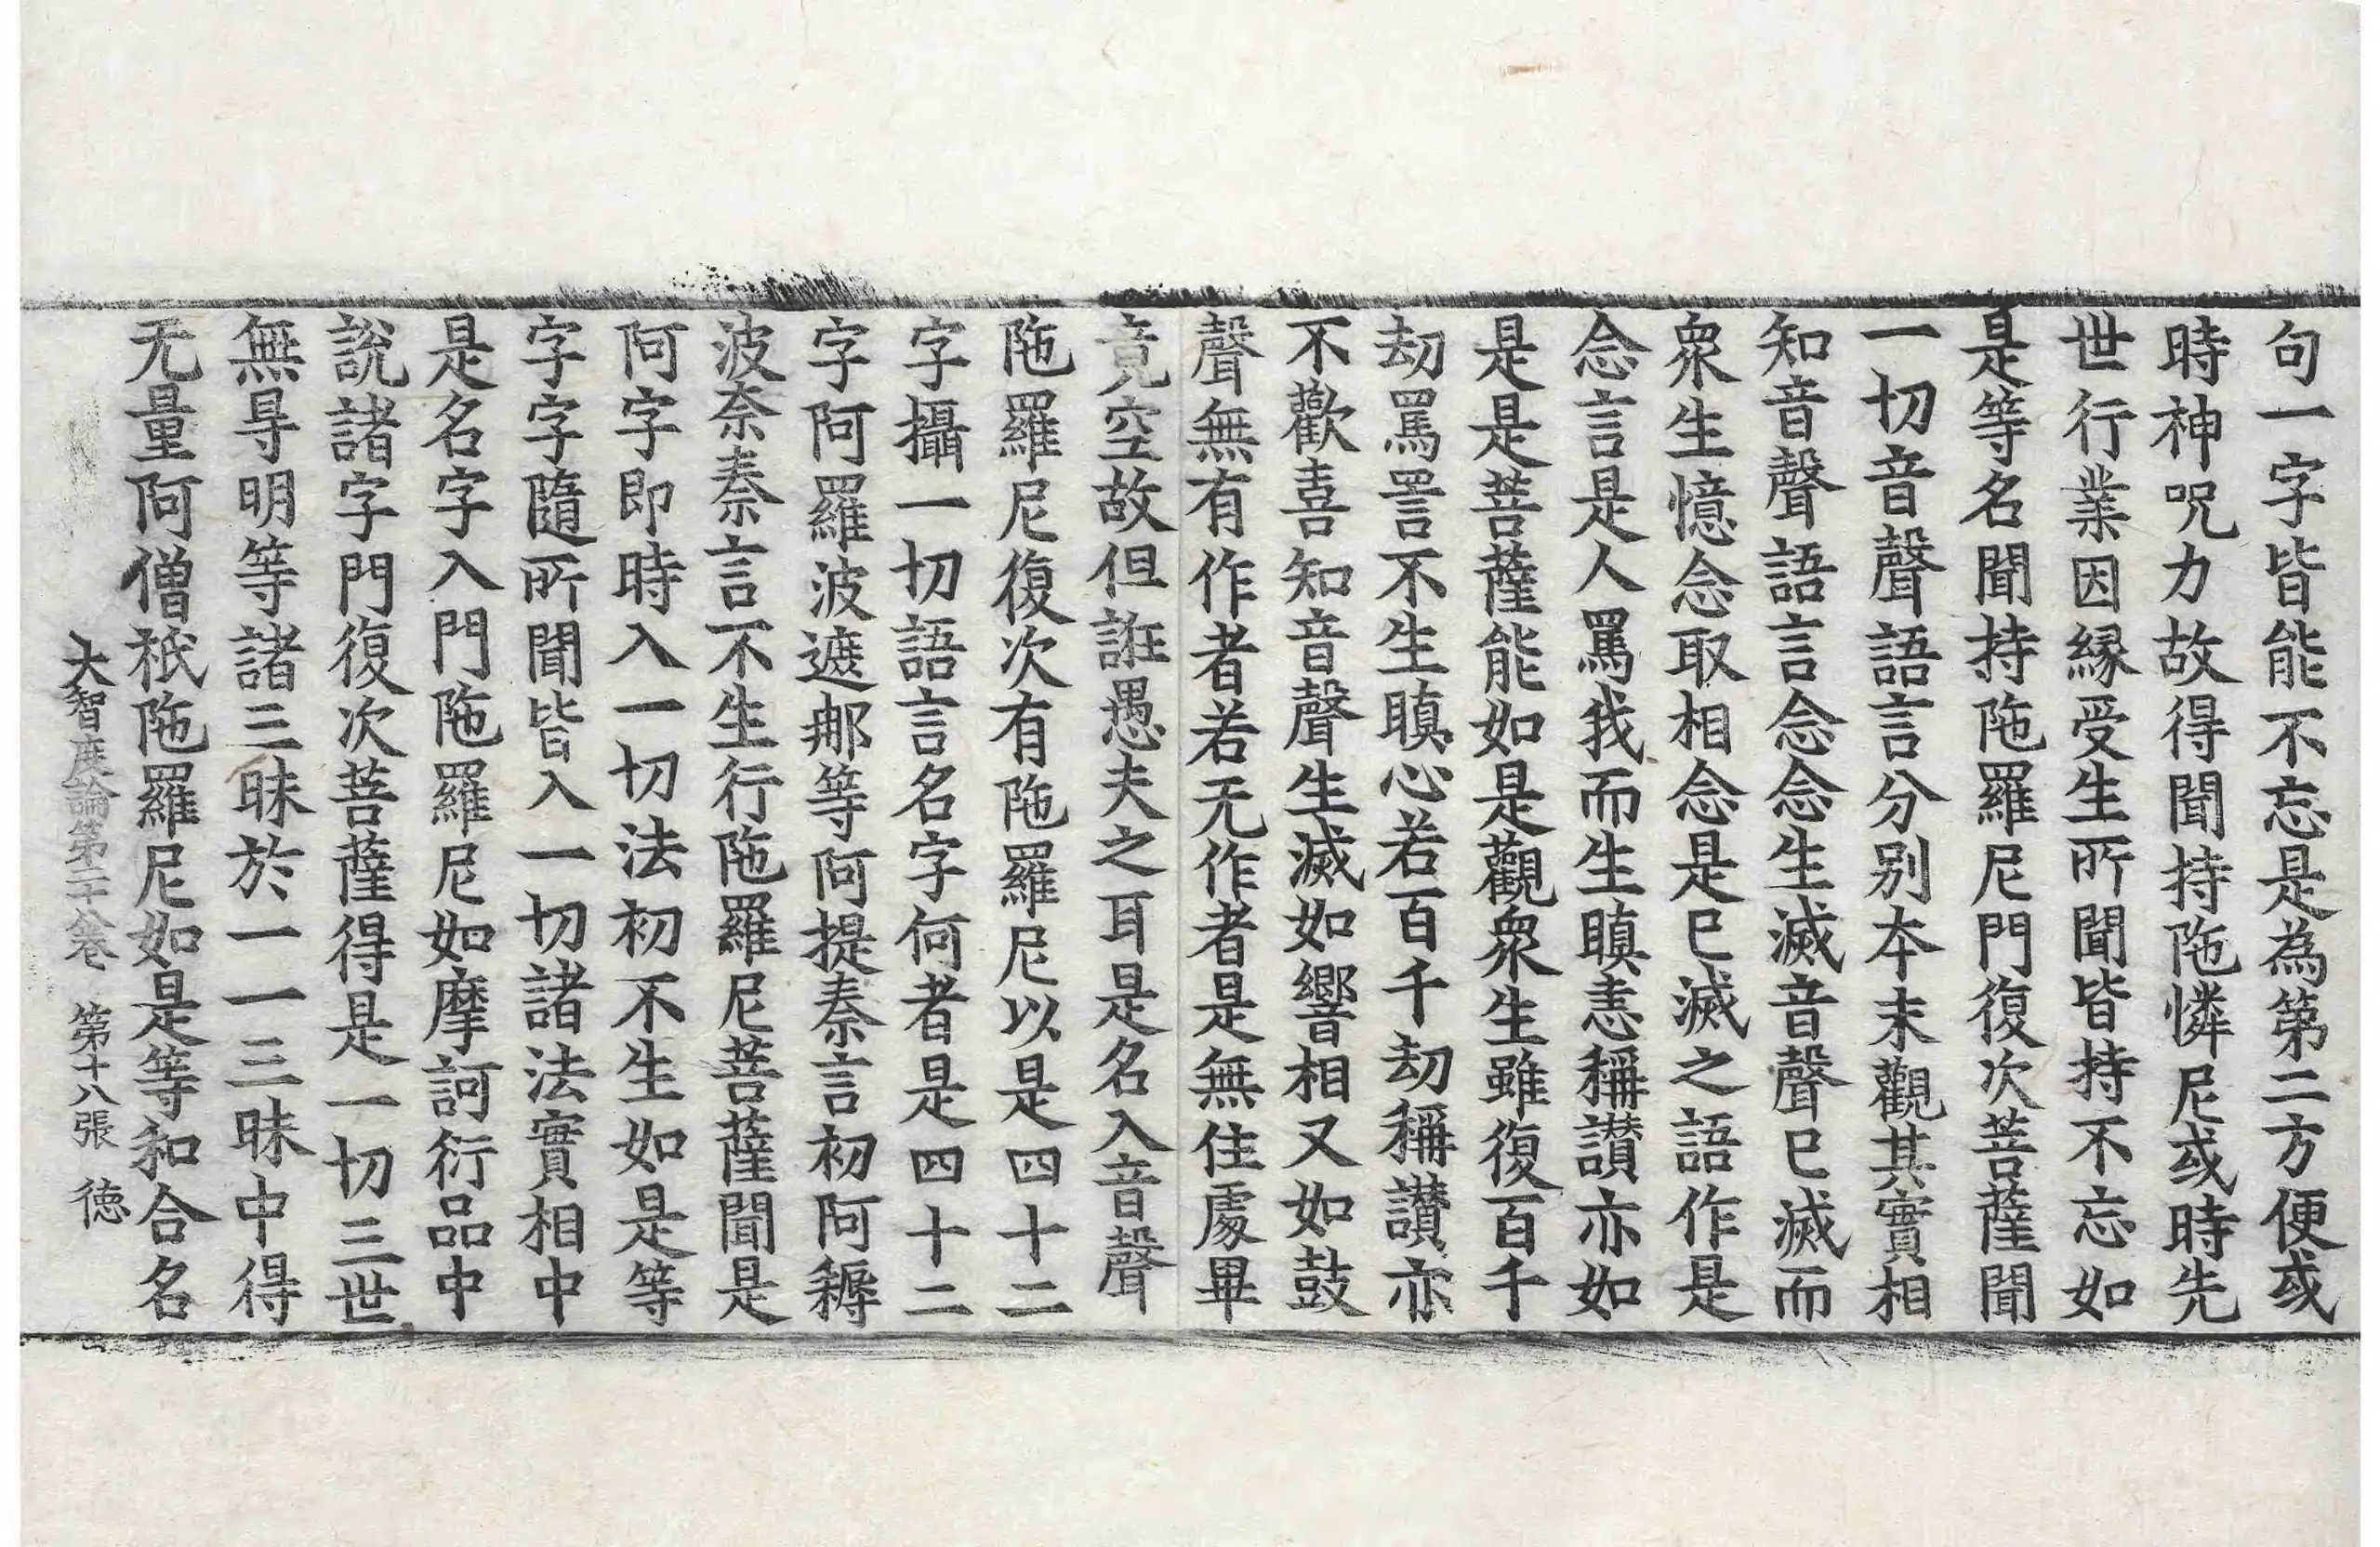 句一字皆能不忘是為第二方便或
時神呪力故得聞持陁憐尼或時先
世行業因緣受生所聞皆持不忘如
是等名聞持陁羅尼門復次菩薩聞
一切音聲語言分別本末觀其實相
知音聲語言念念生滅音聲已滅而
衆生憶念取相念是已滅之語作是
念言是人罵我而生瞋恚稱讃亦如
是是菩薩能如是觀衆生雖復百千
劫罵詈不生瞋心若百千劫稱讃亦
不歡喜知音聲生滅如響相又如鼓
聲無有作者若无作者是無住處畢
竟空故但誑愚夫之耳是名入音聲
陁羅尼復次有陁羅尼以是四十二
字攝一切語言名字何者是四十二
字阿羅波遮那等阿提秦言初阿耨
波奈秦言不生行陁羅尼菩薩聞是
阿字即時入一切法初不生如是等
字字隨所聞皆入一切諸法實相中
是名字入門陁羅尼如摩訶衍品中
說諸字門復次菩薩得是一切三世
無㝵明等諸三昧於一一三昧中得
无量阿僧祇陁羅尼如是等和合名
大智度論第二十八卷 第十八張 徳